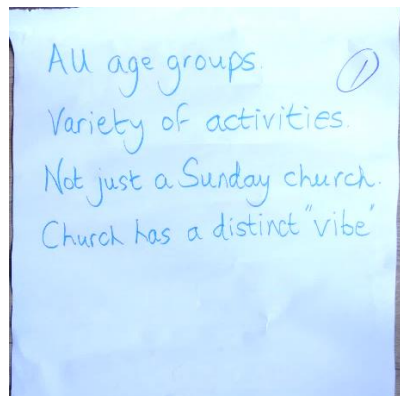 All age groups.
1
Variety of activities.
Not just a Sunday church.
Church has a distinct "vibe"